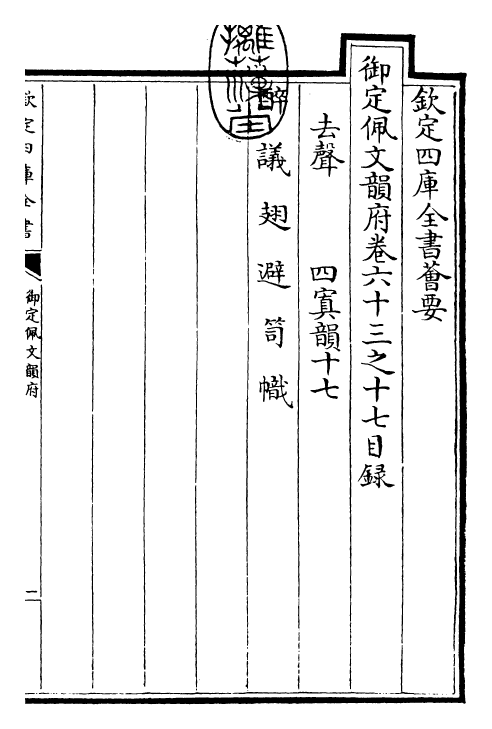 欽定四庫全書薈要
御定佩文韻府卷六十三之十七目録
去聲　四寘韻十七
醉議翅避笥幟
欽定四庫全書
御定佩文韻府